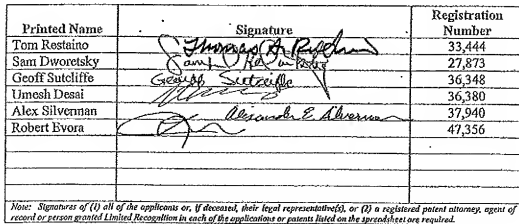 Printed Name Signature Registration Number
Tom Restaino Thomas 33,444
Sam Dworetsky 27,873
Geoff Sutcliffe Geoff Sutcliffe 36,348
Umesh Desai 36,380
Alex Silverman Alexander E. Silverman 37,940
Robert Evora 47,356
Note: Signatures of (1) all of the applicants or, if deceased, their legal representative(s), or (2) a registered patent attorney, agent of
record or person granted Limited Recognition in each of the applications or patents listed on the spreadsheet are required.